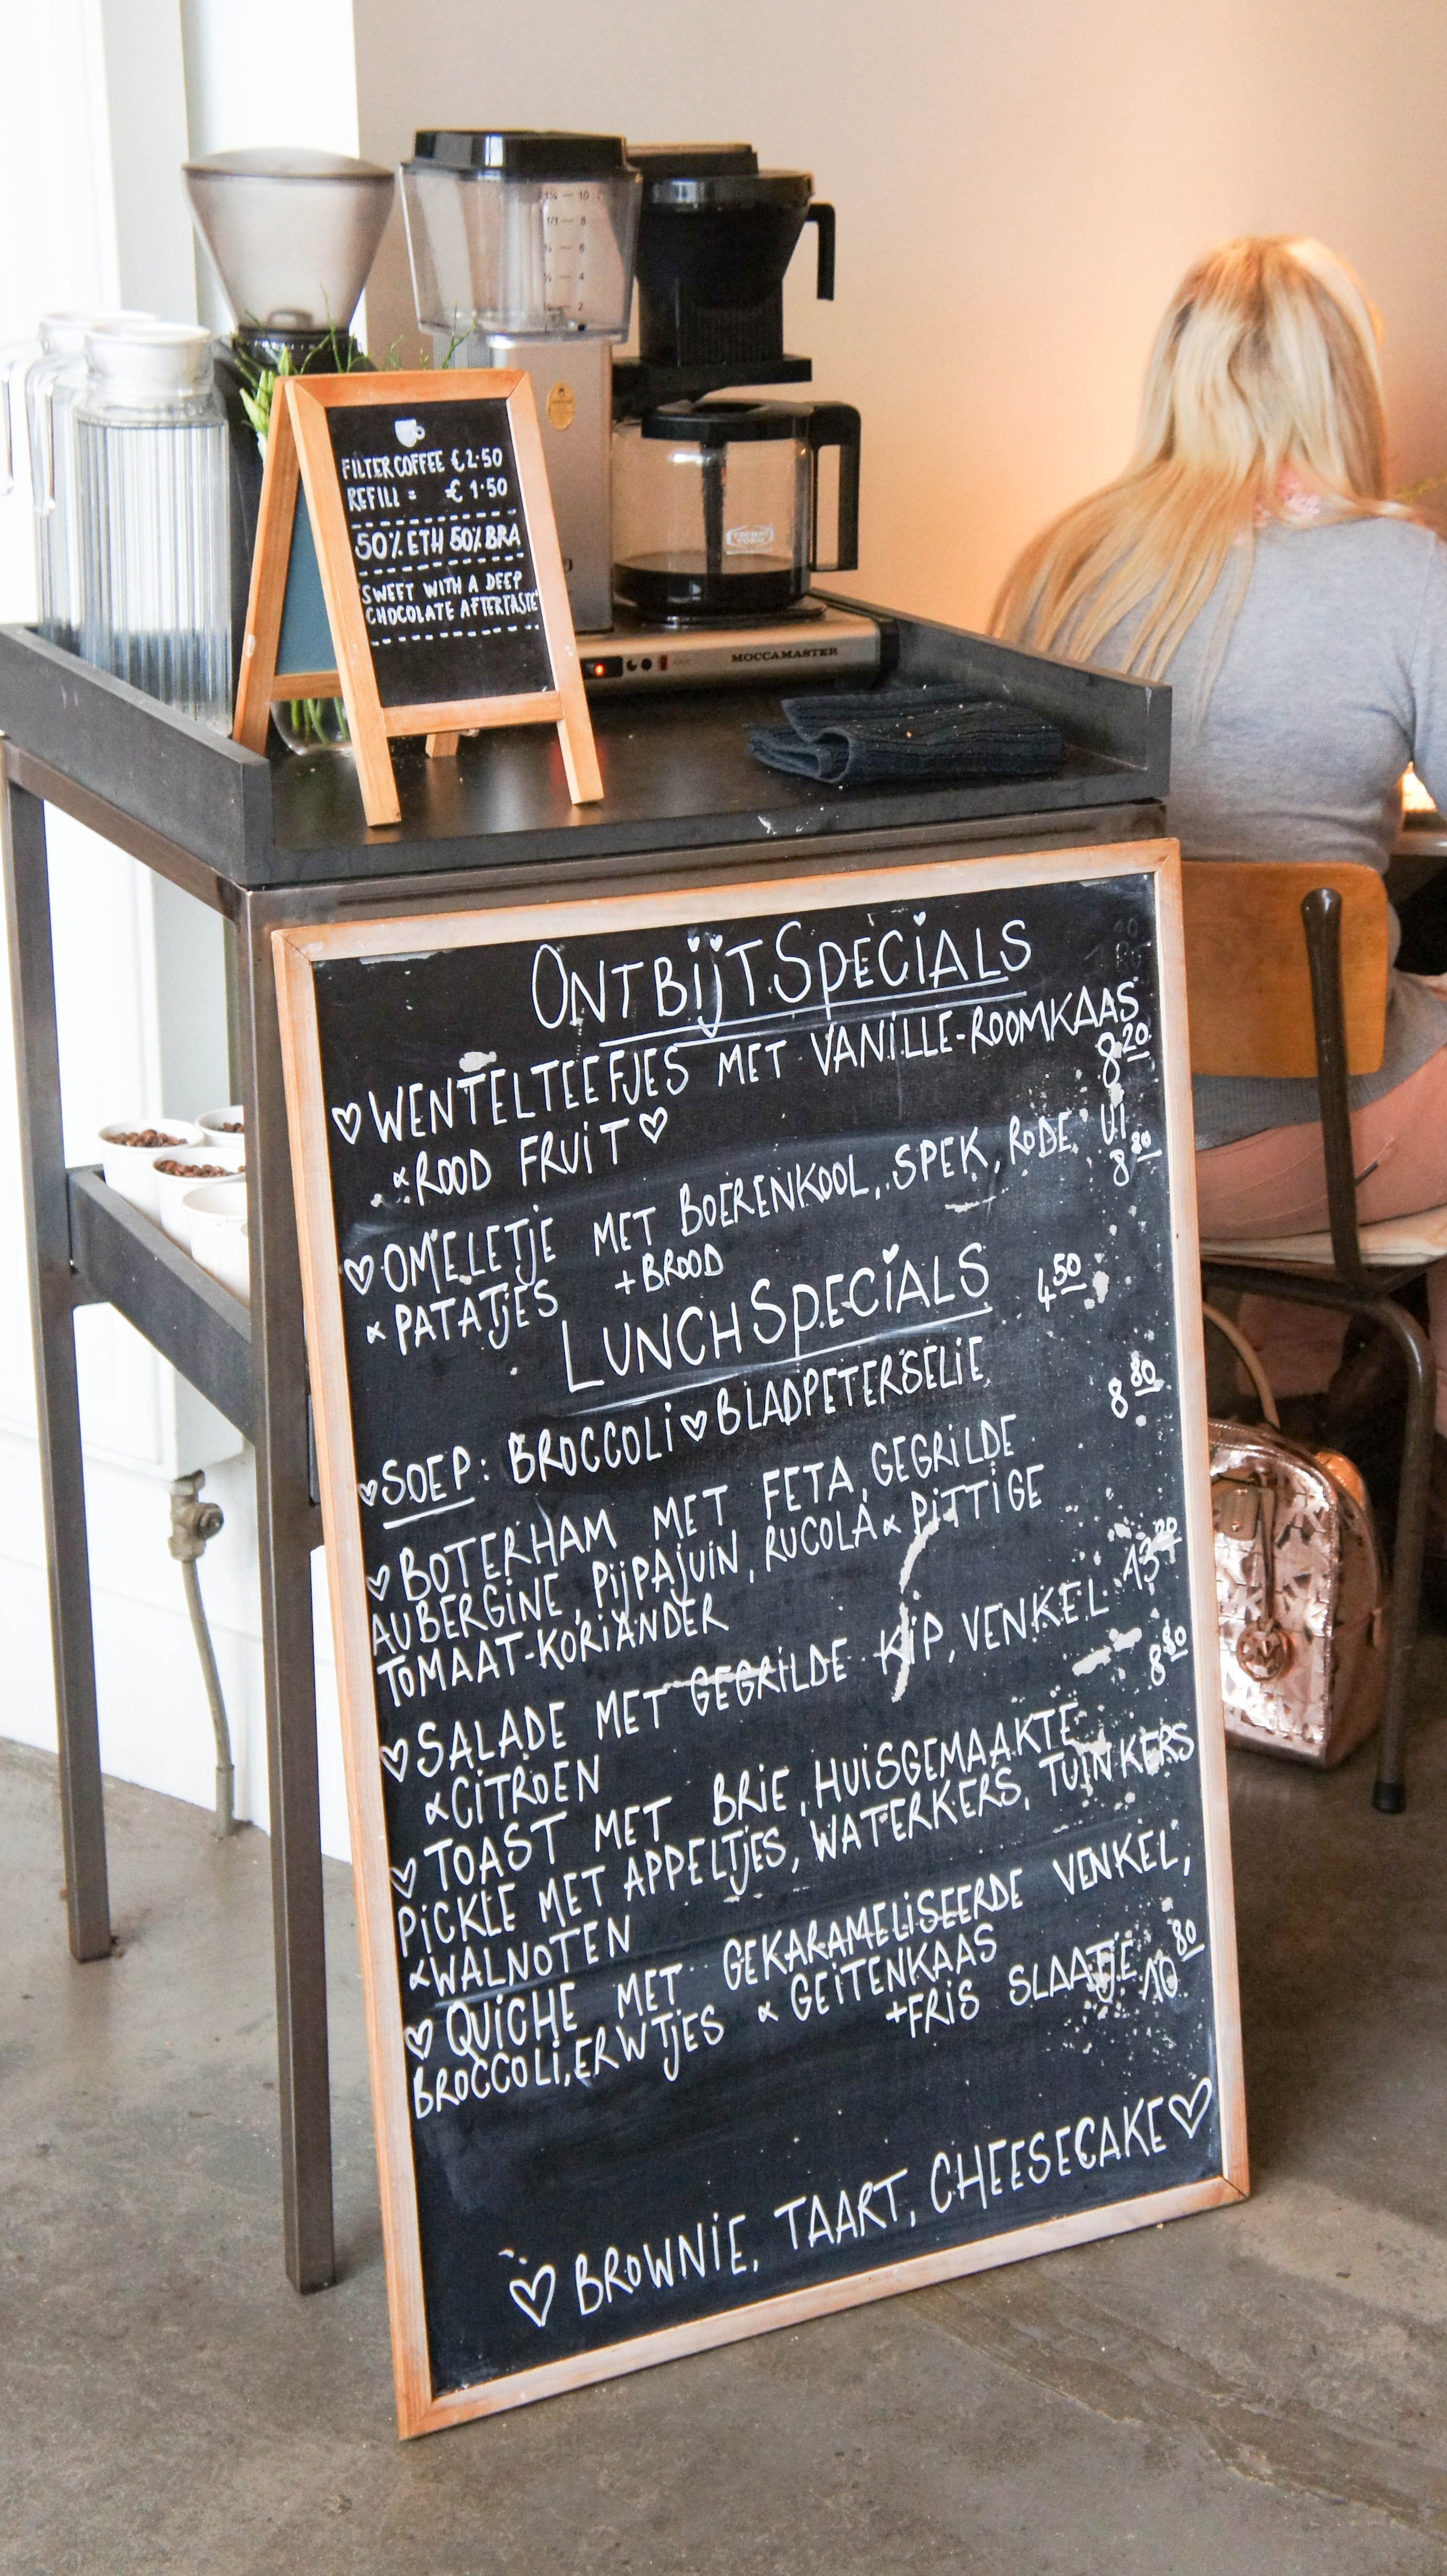 FILTER COFFEE €2.50
REFILL = €1.50
50% ETH 50% BRA
SWEET WITH A DEEP
CHOCOLATE AFTERTASTE
MOCCAMASTER
ONTBIJT SPECIALS
♡ WENTELTEEFJES MET VANILLE-ROOMKAAS
& ROOD FRUIT ♡ 8 20
♡ OMELETJE MET BOERENKOOL, SPEK, RODE UI 8 80
& PATATJES + BROOD
LUNCH SPECIALS
♡ SOEP: BROCCOLI ♡ BLADPETERSELIE 4 50
♡ BOTERHAM MET FETA, GEGRILDE 8 80
AUBERGINE, PIJPAJUIN, RUCOLA & PITTIGE
TOMAAT-KORIANDER
♡ SALADE MET GEGRILDE KIP, VENKEL 13 20
& CITROEN
♡ TOAST MET BRIE, HUISGEMAAKTE 8 80
PICKLE MET APPELTJES, WATERKERS, TUINKERS
& WALNOTEN
♡ QUICHE MET GEKARAMELISEERDE VENKEL,
BROCCOLI, ERWTJES & GEITENKAAS
+ FRIS SLAATJE 10 80
♡ BROWNIE, TAART, CHEESECAKE ♡